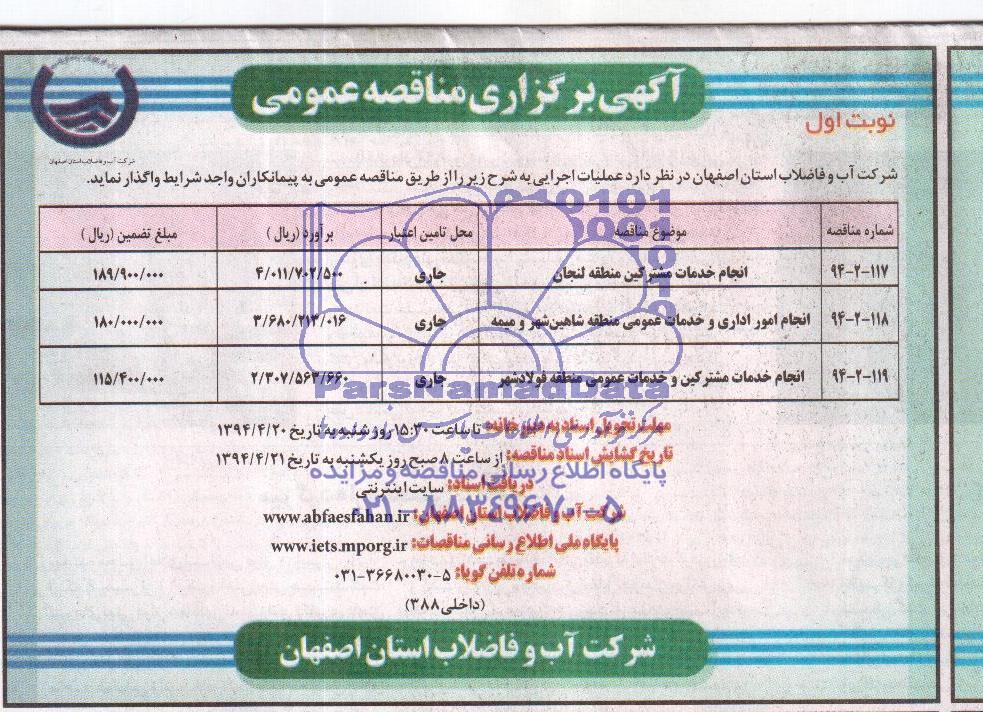 آگهی برگزاری مناقصه عمومی
نوبت اول
شرکت آب و فاضلاب استان اصفهان
شرکت آب و فاضلاب استان اصفهان در نظر دارد عملیات اجرایی به شرح زیر را از طریق مناقصه عمومی به پیمانکاران واجد شرایط واگذار نماید.
شماره مناقصه موضوع مناقصه محل تامین اعتبار برآورد (ریال) مبلغ تضمین (ریال)
۹۴-۲-۱۱۷ انجام خدمات مشترکین منطقه لنجان جاری ۴/۰۱۱/۷۰۲/۵۰۰ ۱۸۹/۹۰۰/۰۰۰
۹۴-۲-۱۱۸ انجام امور اداری و خدمات عمومی منطقه شاهین‌شهر و میمه جاری ۳/۶۸۰/۲۱۳/۰۱۶ ۱۸۰/۰۰۰/۰۰۰
۹۴-۲-۱۱۹ انجام خدمات مشترکین و خدمات عمومی منطقه فولادشهر جاری ۲/۳۰۷/۵۶۳/۶۶۰ ۱۱۵/۴۰۰/۰۰۰
ParsNamadData
مهلت تحویل اسناد به دبیرخانه: تا ساعت ۱۵:۳۰ روز شنبه به تاریخ ۱۳۹۴/۴/۲۰
تاریخ گشایش اسناد مناقصه: از ساعت ۸ صبح روز یکشنبه به تاریخ ۱۳۹۴/۴/۲۱
پایگاه اطلاع رسانی مناقصه و مزایده
دریافت اسناد: سایت اینترنتی
۰۲۱-۸۸۳۴۹۶۷۰-۵
شرکت آب و فاضلاب استان اصفهان: www.abfaesfahan.ir
پایگاه ملی اطلاع رسانی مناقصات: www.iets.mporg.ir
شماره تلفن گویا: ۵-۰۳۱-۳۶۶۸۰۰۳۰
(داخلی ۳۸۸)
شرکت آب و فاضلاب استان اصفهان